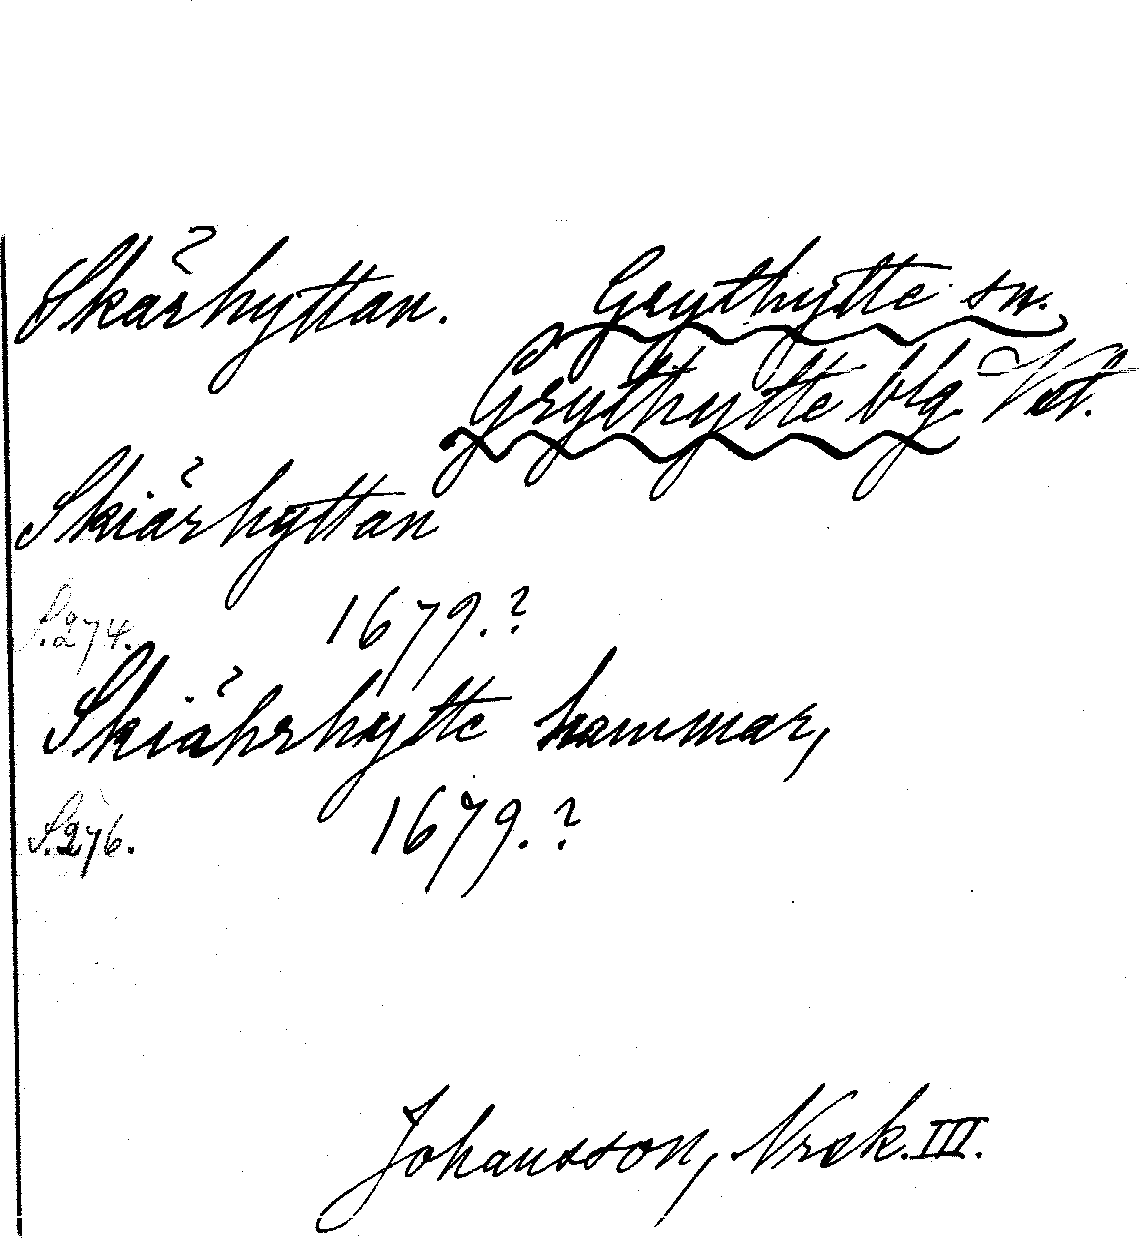 Skärhyttan. Grythytte sn.
Grythytte blg. Vstl.
Skiärhyttan
S.274. 1679.?
Skiährhytte hammar,
S.276. 1679.?
Johansson, Noraskog III.